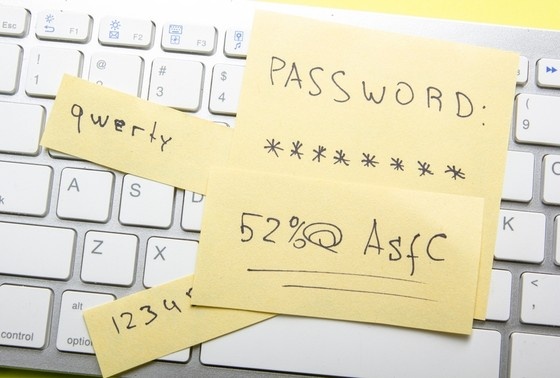 Esc
F1
F2
F3
!
1
@
2
#
3
$
4
(
9
qwerty
PASSWORD:
********
52%@ AsfC
A
S
D
K
Z
X
<
,
1234
control
alt
option